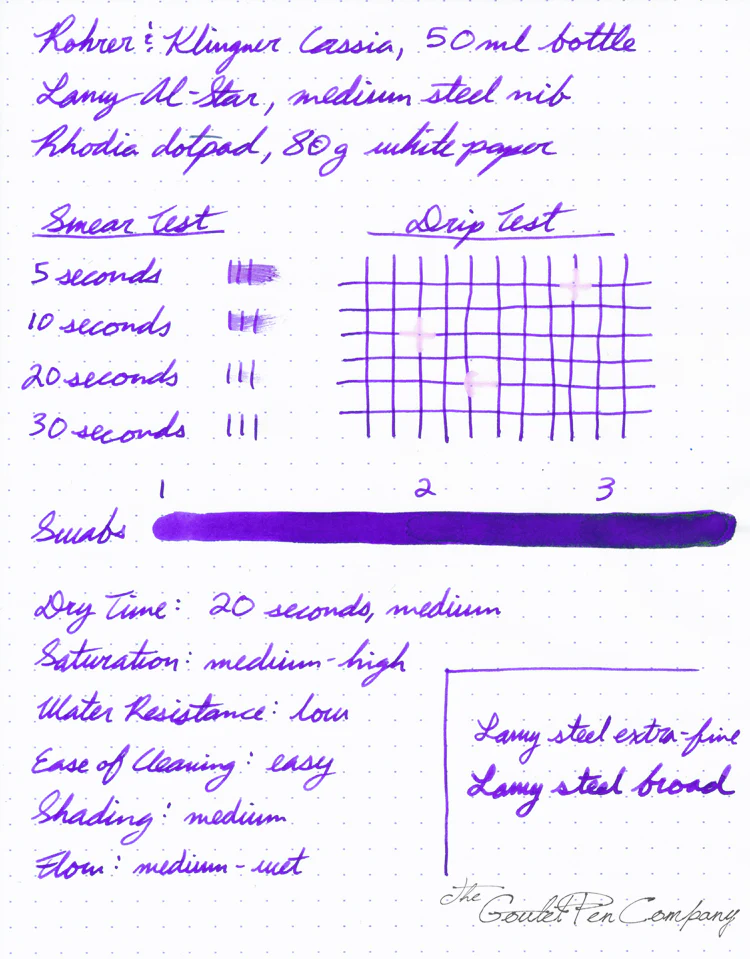 Rohrer & Klingner Cassia, 50ml bottle
Lamy Al-Star, medium steel nib
Rhodia dotpad, 80g white paper
Smear Test
Drip Test
5 seconds
10 seconds
20 seconds
30 seconds
1 2 3
Swabs
Dry Time: 20 seconds, medium
Saturation: medium-high
Water Resistance: low
Ease of Cleaning: easy
Shading: medium
Flow: medium-wet
Lamy steel extra-fine
Lamy steel broad
The Goulet Pen Company